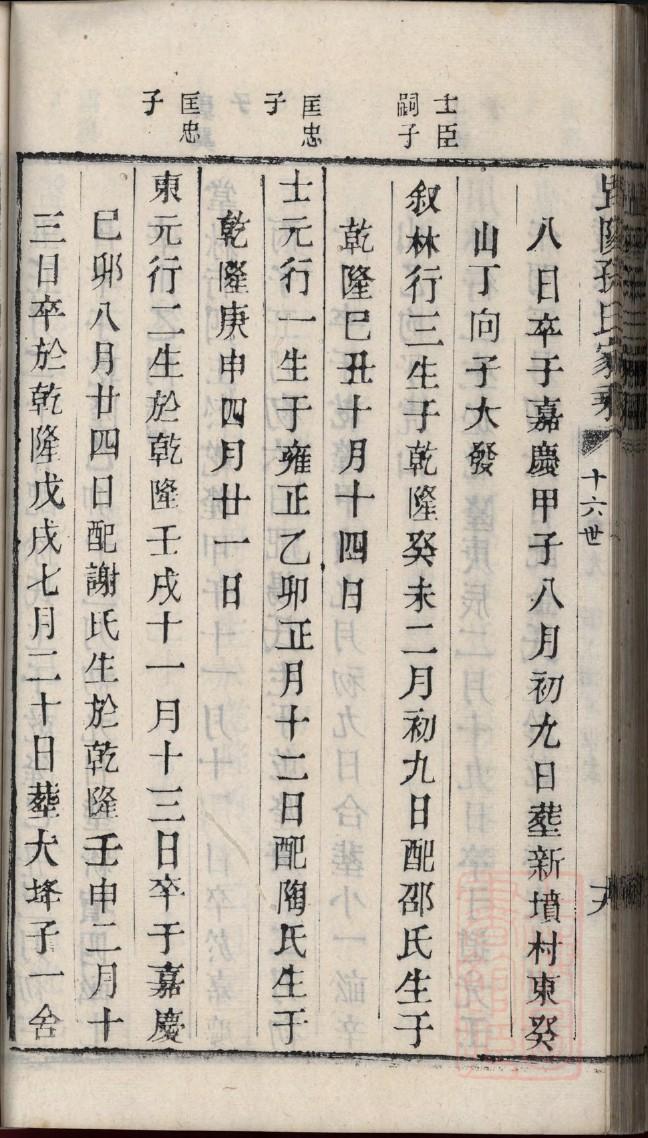 孫氏家乘
十六世
八日卒于嘉慶甲子八月初九日塟新墳村東癸
山丁向子大發
士臣
嗣子
叙林行三生于乾隆癸未二月初九日配邵氏生于
乾隆巳丑十月十四日
匡忠
子
士元行一生于雍正乙卯正月十二日配陶氏生于
乾隆庚申四月廿一日
匡忠
子
東元行二生於乾隆壬戌十一月十三日卒于嘉慶
巳卯八月廿四日配謝氏生於乾隆壬申二月十
三日卒於乾隆戊戌七月二十日塟大垟子一舍